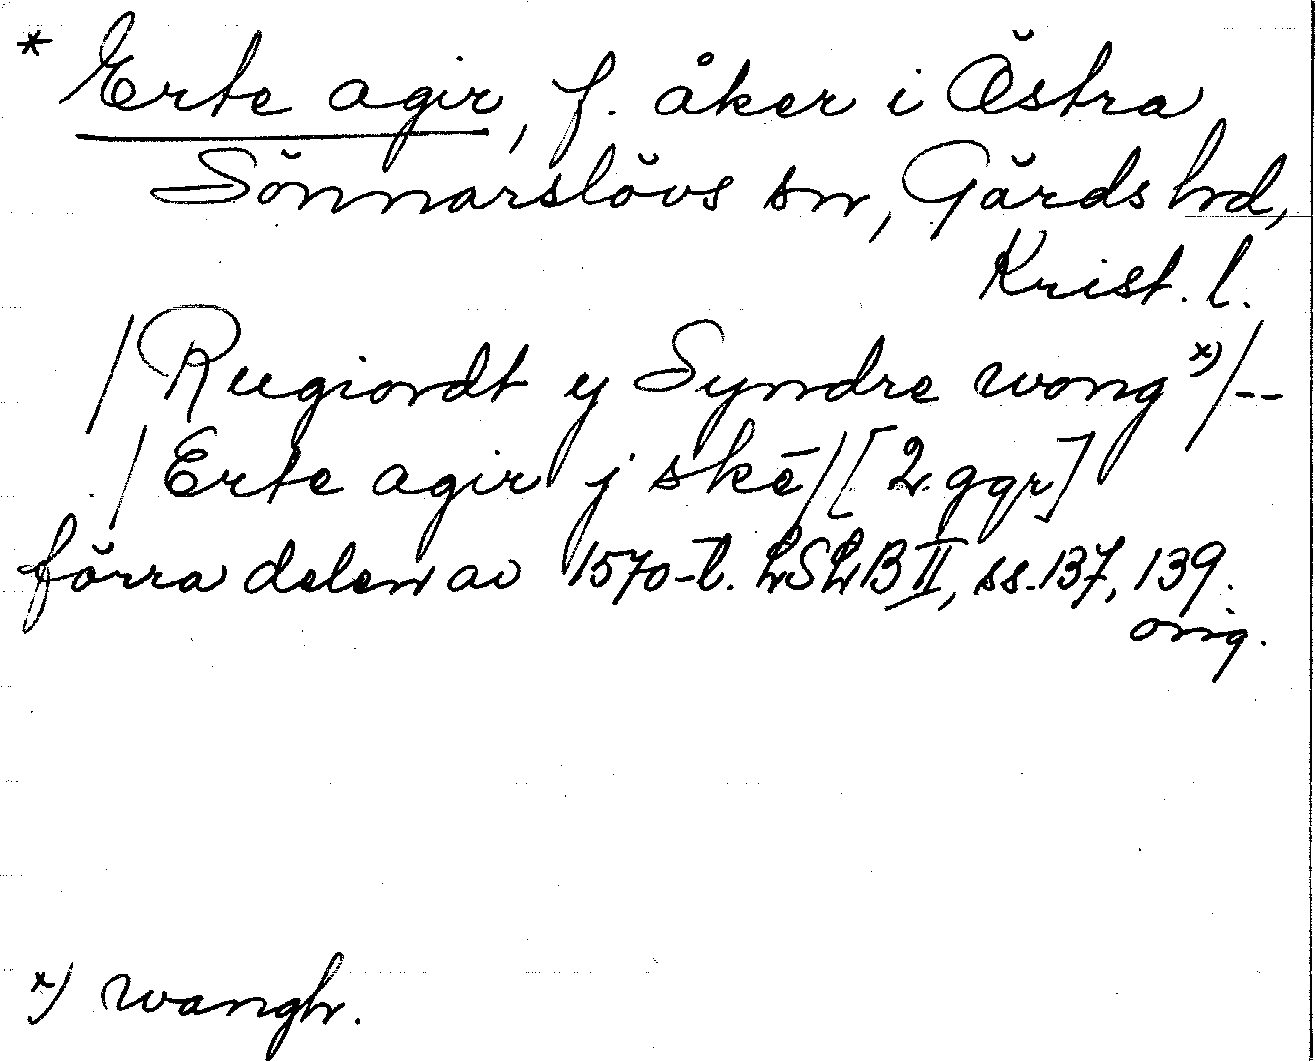 * Erte agir, f. åker i Östra
Sönnarslövs sn, Gärds hd,
Krist. l.
/Rugiordt y Syndre wong x)/--
/Erte agir j skē/[2 ggr]
förra delen av 1570-t. LSLB II, ss. 137, 139.
orig.
x) wangh.